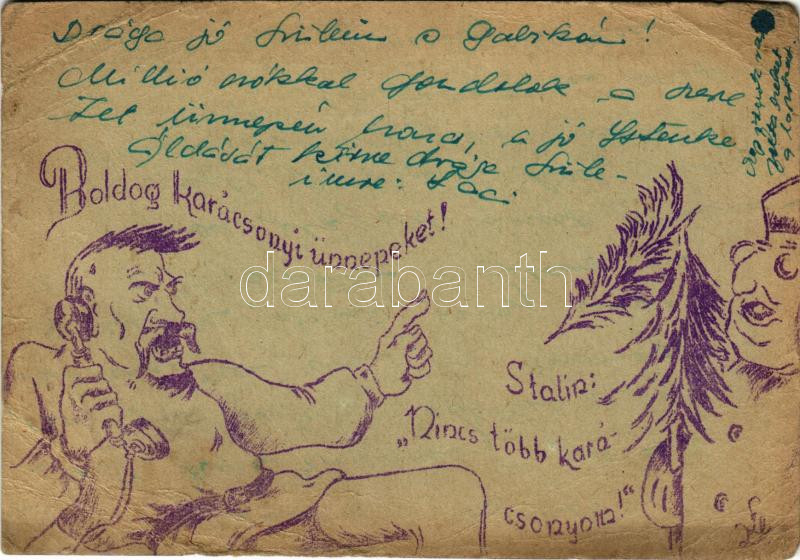 Drága jó Szüleim s Gabikám!
Millió csókkal gondolok a szere
tet ünnepén haza, a jó Istenke
Áldását kérve drága Szüle-
imre: Laci
Boldog karácsonyi ünnepeket!
darabanth
Stalin:
„Nincs több kará-
csonyom!"